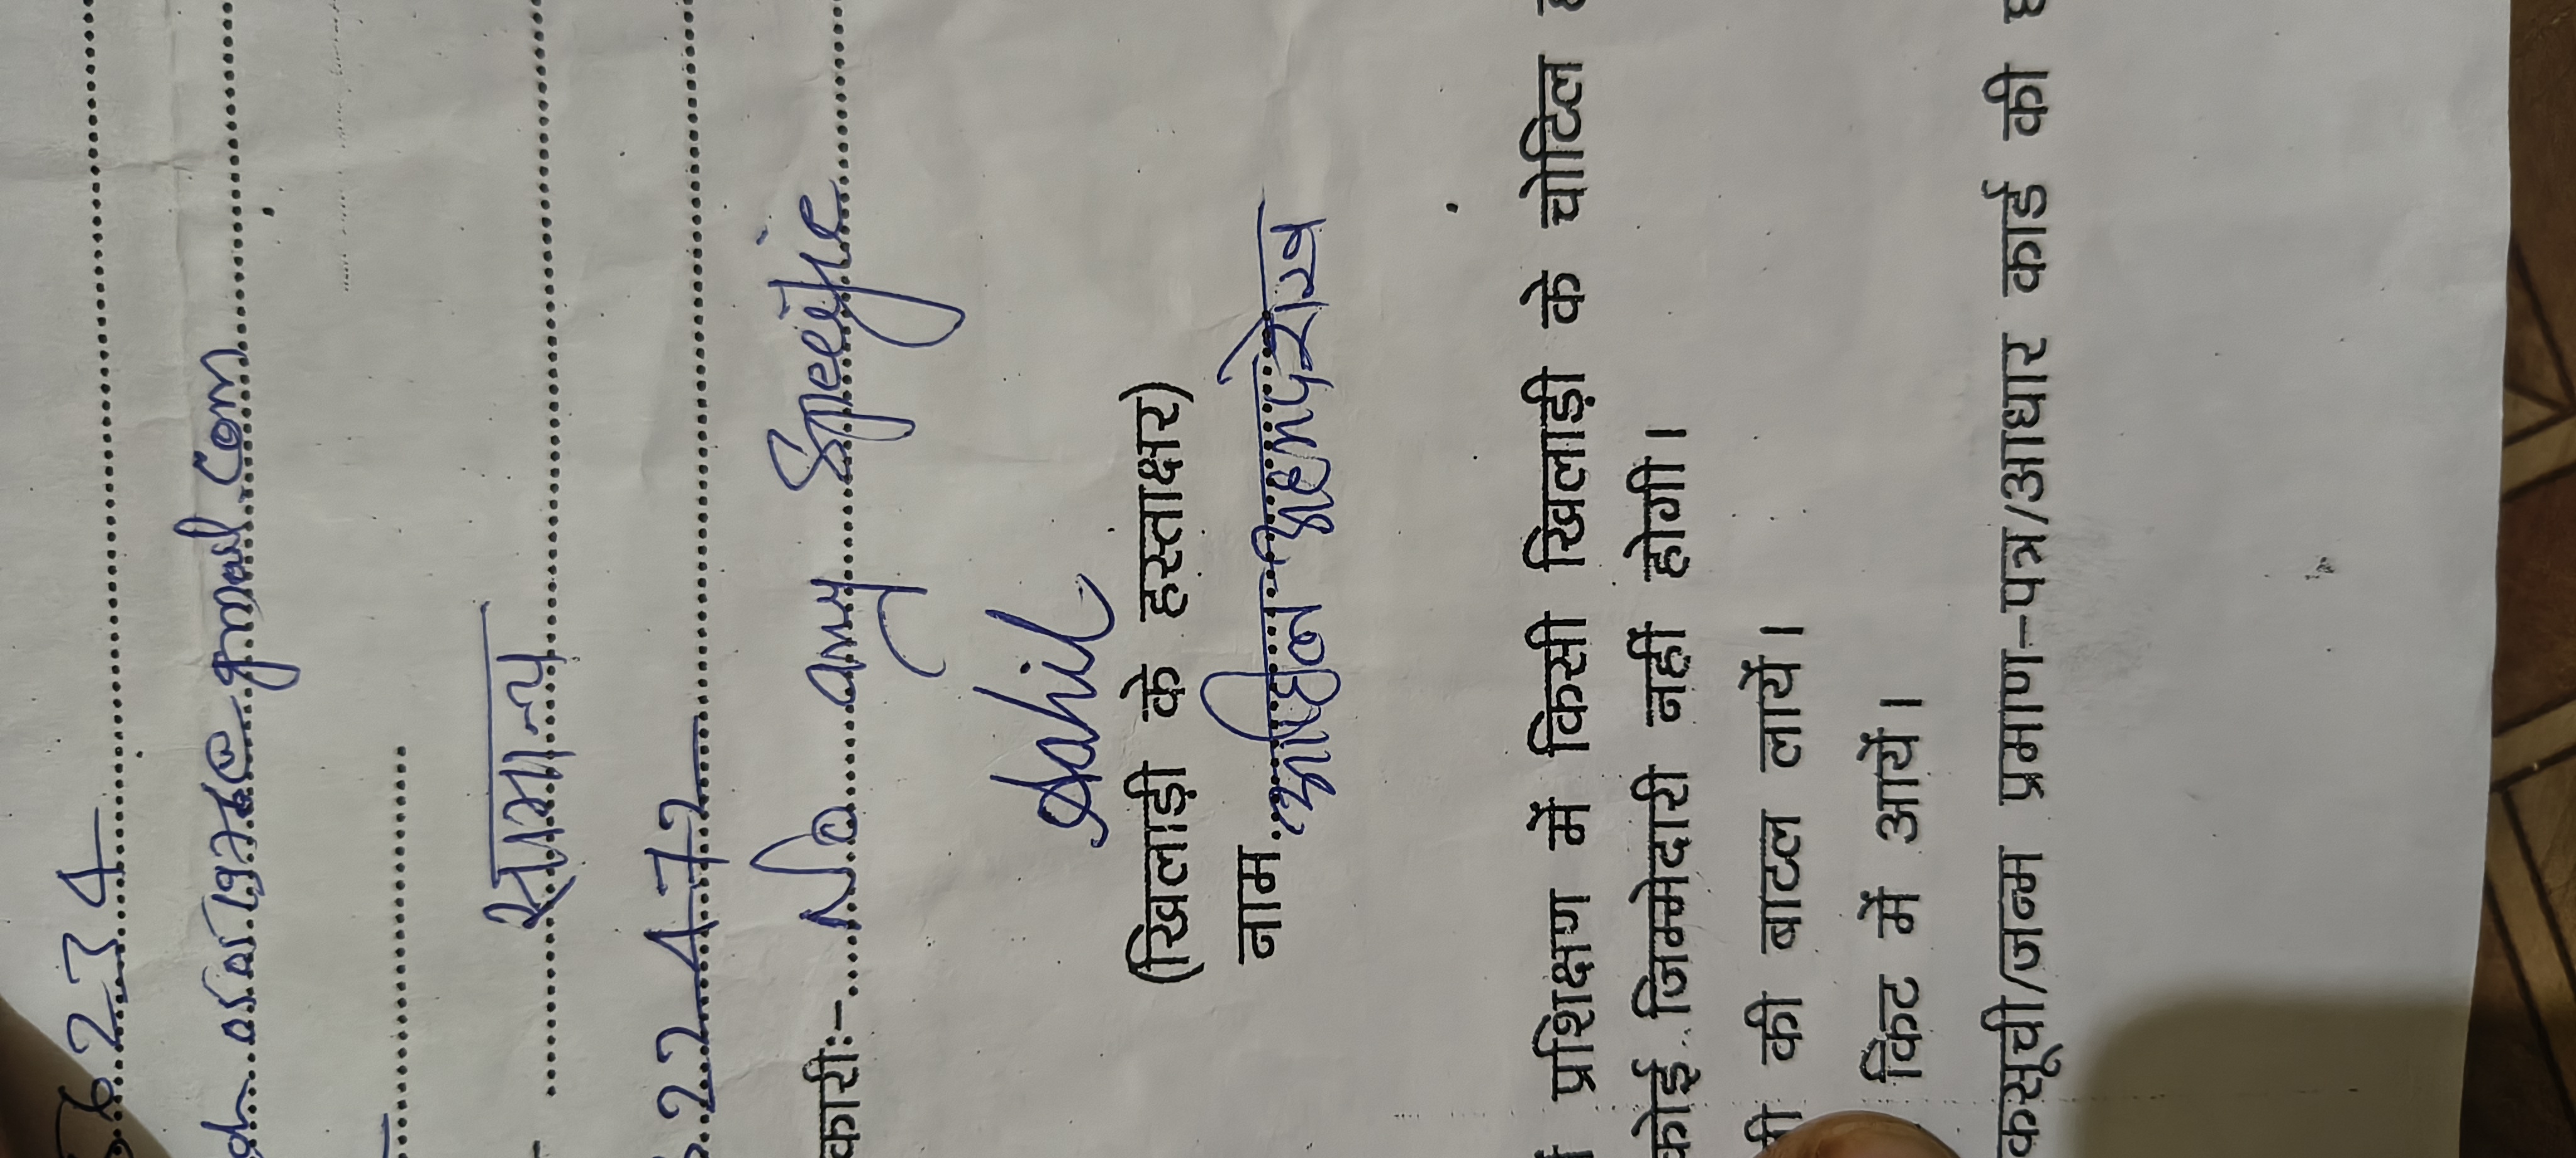 6.2.3.4
05051976@gmail.com
सामान्य
6.22.472
कारीः- No any Specific
Sahil
(खिलाड़ी के हस्ताक्षर)
नाम. साहिल
प्रशिक्षण में किसी खिलाड़ी के चोटिल
कोई जिम्मेदारी नहीं होगी।
की बाटल लायें।
किट में आयें।
कसूची/जन्म प्रमाण-पत्र/आधार कार्ड की